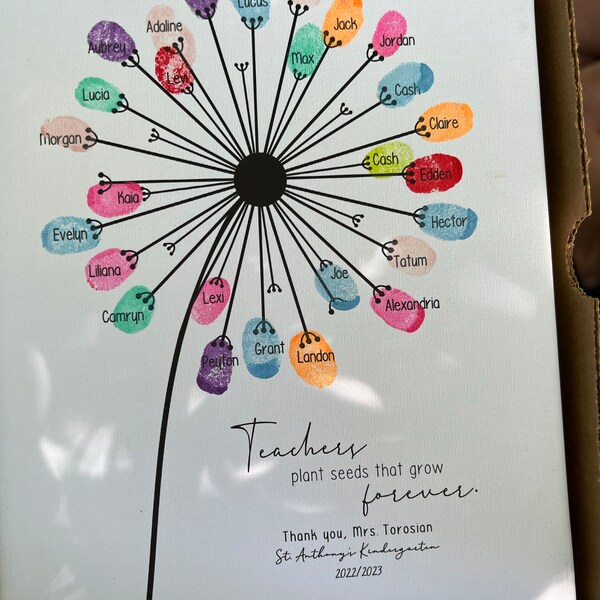 Lucas
Adaline
Jack
Aubrey
Jordan
Max
Levi
Cash
Lucia
Claire
Morgan
Cash
Edden
Kaia
Hector
Evelyn
Tatum
Liliana
Joe
Lexi
Alexandria
Camryn
Grant
Landon
Peyton
Teachers
plant seeds that grow
forever.
Thank you, Mrs. Torosian
St. Anthony's Kindergarten
2022/2023